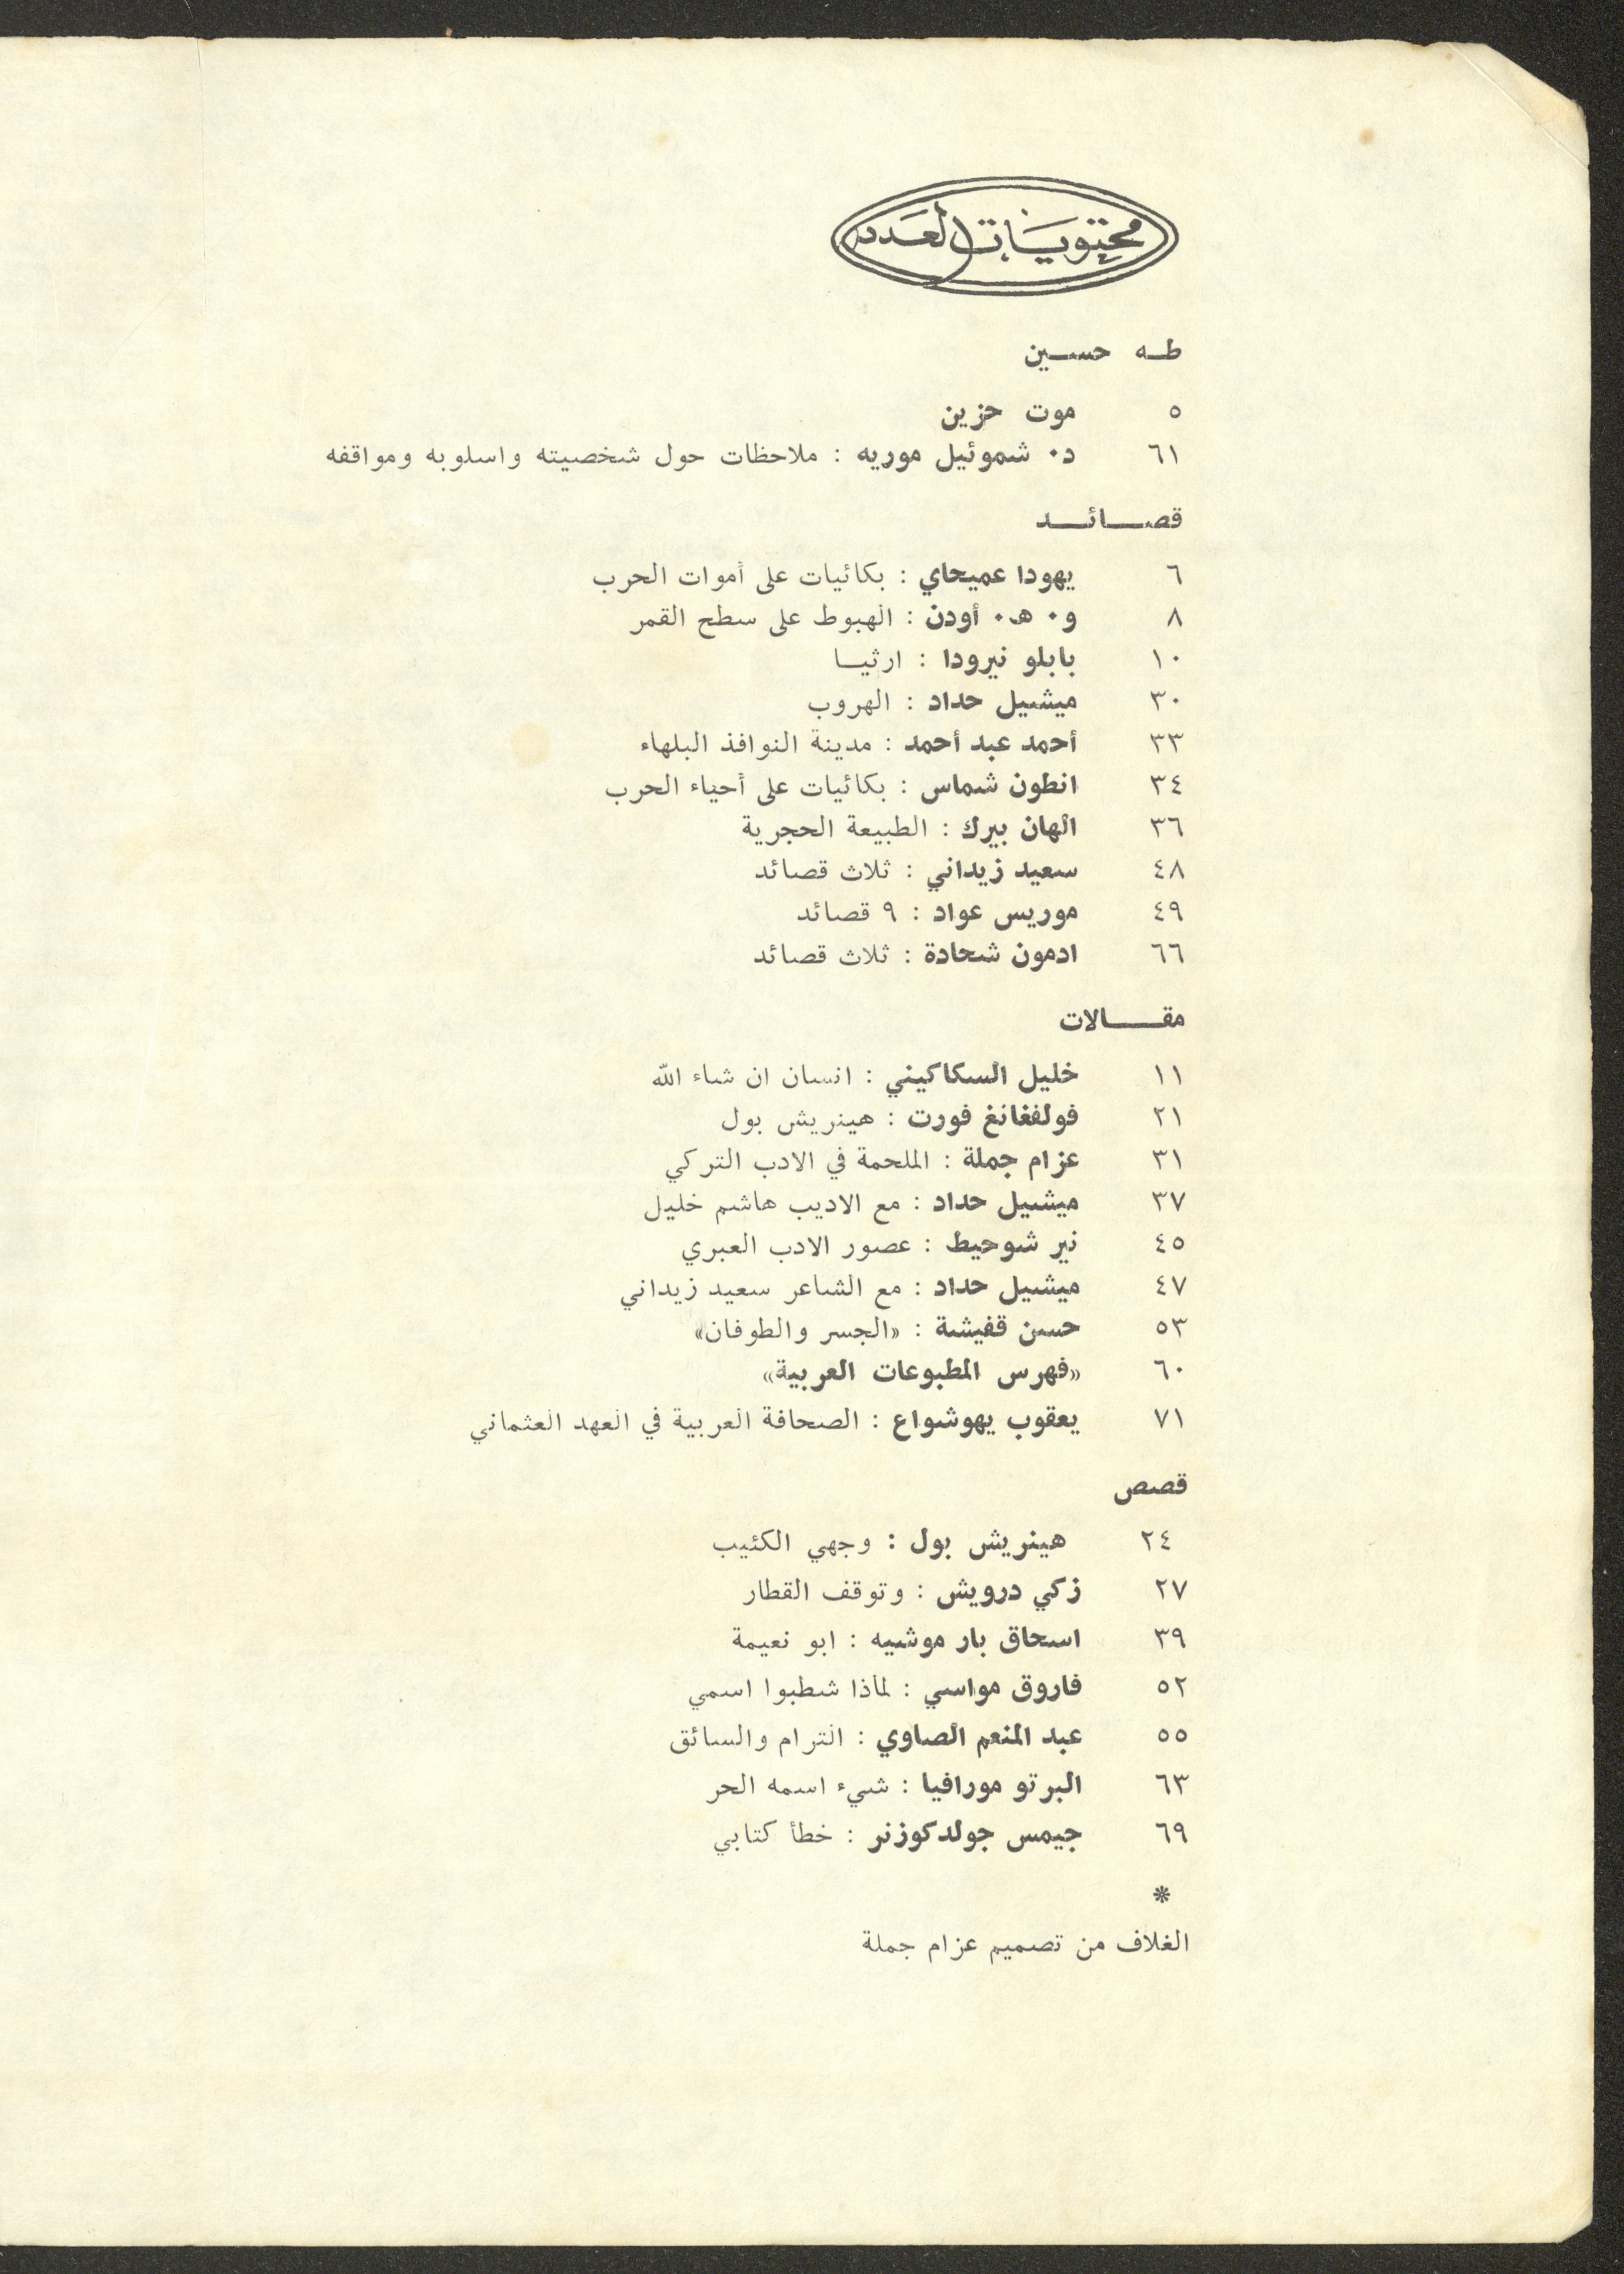 محتويات العدد
طه حسين
٥ موت حزين
٦١ د٠ شموئيل موريه : ملاحظات حول شخصيته واسلوبه ومواقفه
قصائد
٦ يهودا عميحاي : بكائيات على أموات الحرب
٨ و٠ ه٠ أودن : الهبوط على سطح القمر
١٠ بابلو نيرودا : ارثيا
٣٠ ميشيل حداد : الهروب
٣٣ أحمد عبد أحمد : مدينة النوافذ البلهاء
٣٤ انطون شماس : بكائيات على أحياء الحرب
٣٦ الهان بيرك : الطبيعة الحجرية
٤٨ سعيد زيداني : ثلاث قصائد
٤٩ موريس عواد : ٩ قصائد
٦٦ ادمون شحادة : ثلاث قصائد
مقالات
١١ خليل السكاكيني : انسان ان شاء الله
٢١ فولفغانغ فورت : هينريش بول
٣١ عزام جملة : الملحمة في الادب التركي
٣٧ ميشيل حداد : مع الاديب هاشم خليل
٤٥ نير شوحيط : عصور الادب العبري
٤٧ ميشيل حداد : مع الشاعر سعيد زيداني
٥٣ حسن قفيشة : «الجسر والطوفان»
٦٠ «فهرس المطبوعات العربية»
٧١ يعقوب يهوشواع : الصحافة العربية في العهد العثماني
قصص
٢٤ هينريش بول : وجهي الكئيب
٢٧ زكي درويش : وتوقف القطار
٣٩ اسحاق بار موشيه : ابو نعيمة
٥٢ فاروق مواسي : لماذا شطبوا اسمي
٥٥ عبد المنعم الصاوي : الترام والسائق
٦٣ البرتو مورافيا : شيء اسمه الحر
٦٩ جيمس جولدكوزنر : خطأ كتابي
*
الغلاف من تصميم عزام جملة